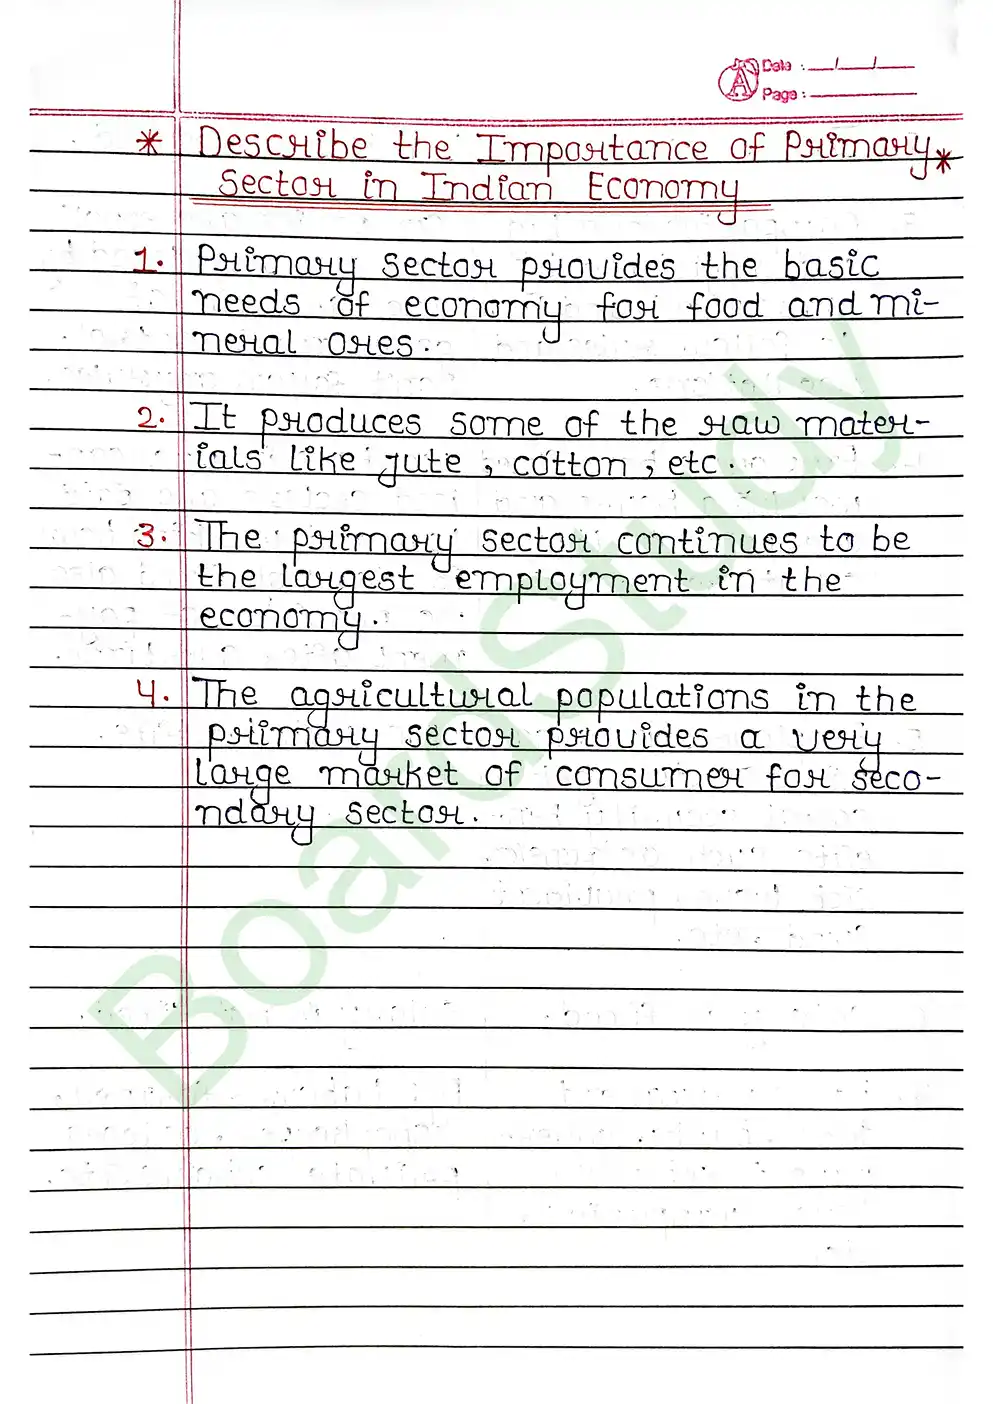 Date : __/__/__
Page : ______
* Describe the Importance of Primary *
Sector in Indian Economy
1. Primary sector provides the basic
needs of economy for food and mi-
neral ores.
2. It produces some of the raw mater-
ials like jute, cotton, etc.
3. The primary sector continues to be
the largest employment in the
economy.
4. The agricultural populations in the
primary sector provides a very
large market of consumer for seco-
ndary sector.
BoardStudy